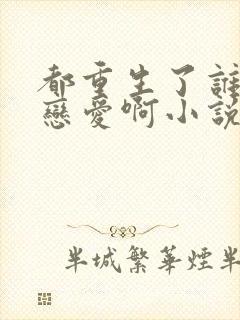 都重生了誰
戀愛啊小說
半城繁華煙半